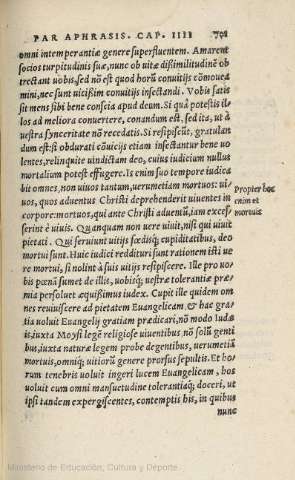 PARAPHRASIS. CAP. IIII 701
omni intemperantiæ genere superfluentem. Amarent
socios turpitudinis suæ, nunc ob uitæ dißimilitudinẽ ob
trectant uobis, sed nõ est quod horũ conuitijs cõmouea
mini, nec sunt uicißim conuitijs insectandi. Vobis satis
sit mens sibi bene conscia apud deum. Si quà potestis il-
los ad meliora conuertere, conandum est, sed ita, ut à
uestra synceritate nõ recedatis. Si resipiscũt, gratulan
dum est: si obdurati cõuicijs etiam insectantur bene uo
lentes, relinquite uindictam deo, cuius iudicium nullus
mortalium potest effugere. Is enim suo tempore iudica
bit omnes, non uiuos tantum, uerumetiam mortuos: ui-
uos, quos aduentus Christi deprehenderit uiuentes in
corpore: mortuos, qui ante Christi aduentũ, iam exces-
serint è uiuis. Quanquam non uere uiuit, nisi qui uiuit
pietati. Qui seruiunt uitijs fœdisq; cupiditatibus, deo
mortui sunt. Huic iudici reddituri sunt rationem isti ue
re mortui, si nolint à suis uitijs resipiscere. Ille pro uo-
bis pœnã sumet de illis, uobisq; uestræ tolerantiæ præ-
mia persoluet æquißimus iudex. Cupit ille quidem om
nes reuiuiscere ad pietatem Euangelicam & hac gra-
tia uoluit Euangelij gratiam prædicari, nõ modo Iudæ-
is, iuxta Moysi legẽ religiose uiuentibus nõ solũ genti
bus, iuxta naturæ legem probe degentibus, uerumetiã
mortuis, omniq; uitiorũ genere prorsus sepultis. Et ho-
rum tenebris uoluit ingeri lucem Euangelicam, hos
uoluit cum omni mansuetudine tolerantiaq; doceri, ut
ipsi tandem expergiscentes, contemptis his, in quibus
nunc
Propter hoc
enim et
mortuis
Ministerio de Educación, Cultura y Deporte